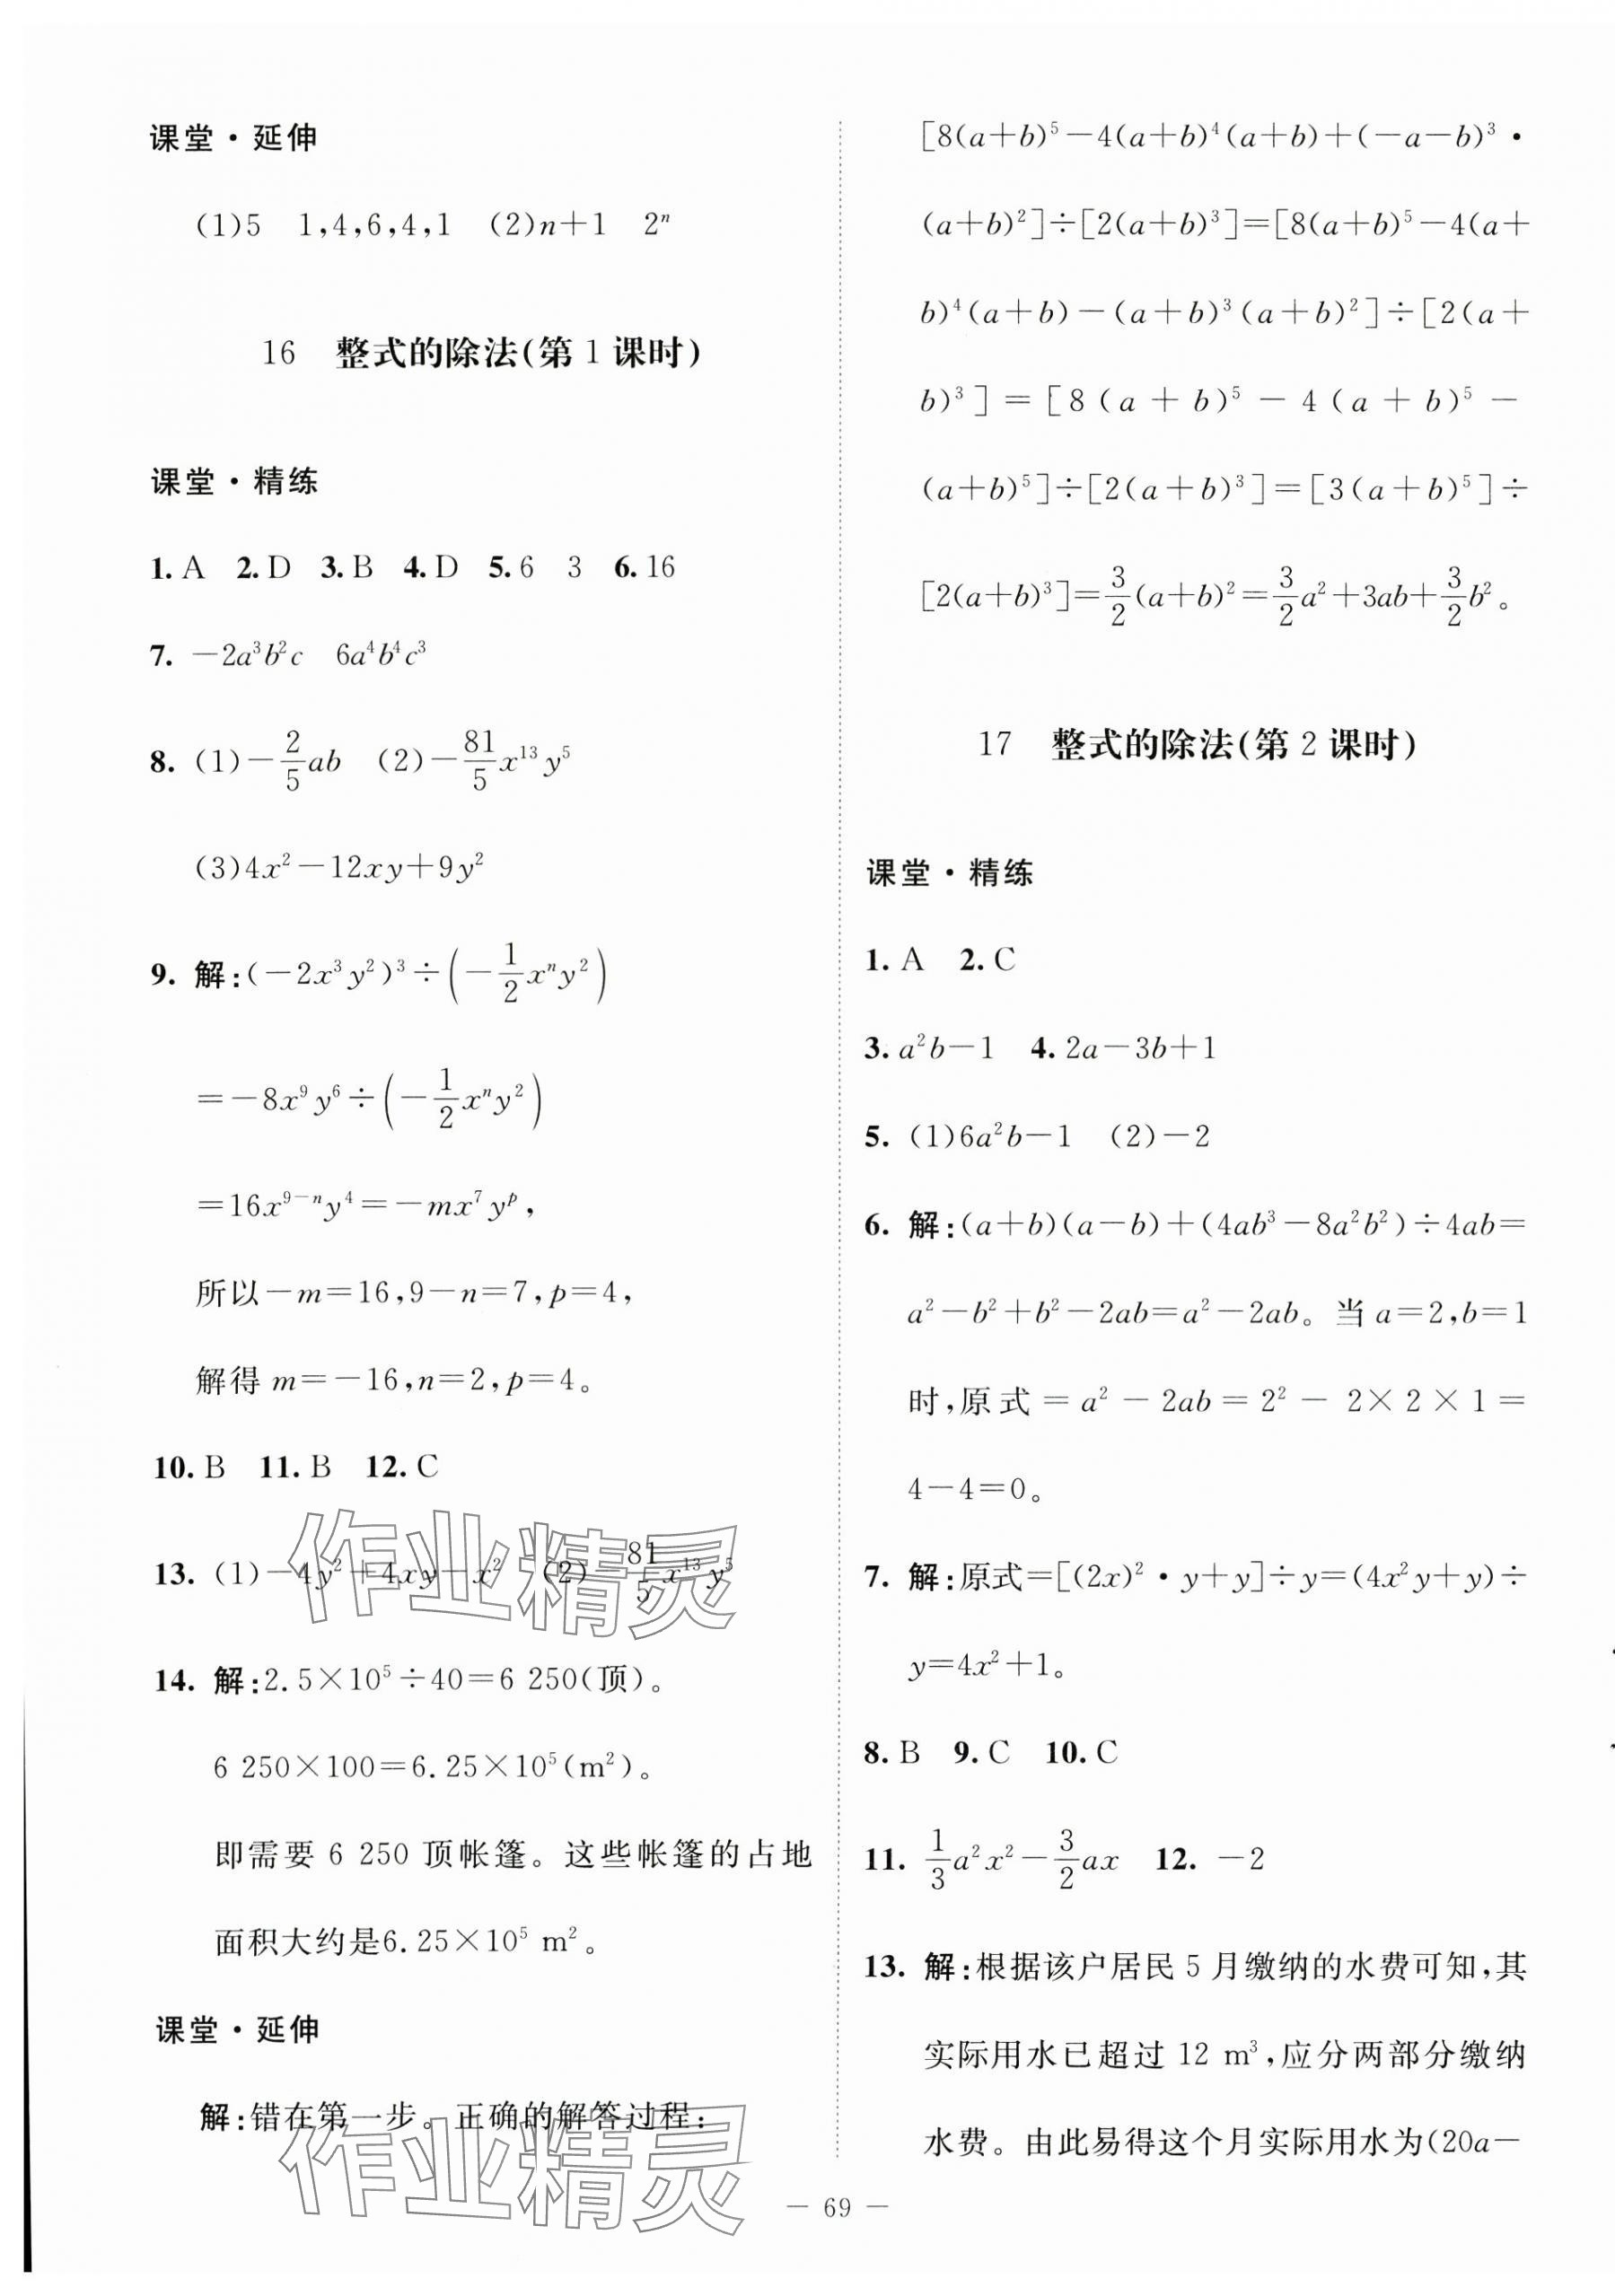 课堂·延伸
(1)5　1,4,6,4,1　(2)n+1　2ⁿ
16　整式的除法(第1课时)
课堂·精练
1. A　2. D　3. B　4. D　5. 6　3　6. 16
7. －2a³b²c　6a⁴b⁴c³
8. (1)－2/5ab　(2)－81/5x¹³y⁵
(3)4x²－12xy＋9y²
9. 解:(－2x³y²)³÷(－1/2xⁿy²)
＝－8x⁹y⁶÷(－1/2xⁿy²)
＝16x⁹⁻ⁿy⁴＝－mx⁷yᵖ,
所以－m＝16,9－n＝7,p＝4,
解得 m＝－16,n＝2,p＝4。
10. B　11. B　12. C
13. (1)－4y²＋4xy－x²　(2)－81/5x¹³y⁵
14. 解:2.5×10⁵÷40＝6 250(顶)。
6 250×100＝6.25×10⁵(m²)。
即需要 6 250 顶帐篷。这些帐篷的占地
面积大约是6.25×10⁵ m²。
课堂·延伸
解:错在第一步。正确的解答过程:
[8(a＋b)⁵－4(a＋b)⁴(a＋b)＋(－a－b)³·
(a＋b)²]÷[2(a＋b)³]＝[8(a＋b)⁵－4(a＋
b)⁴(a＋b)－(a＋b)³(a＋b)²]÷[2(a＋
b)³]＝[8(a＋b)⁵－4(a＋b)⁵－
(a＋b)⁵]÷[2(a＋b)³]＝[3(a＋b)⁵]÷
[2(a＋b)³]＝3/2(a＋b)²＝3/2a²＋3ab＋3/2b²。
17　整式的除法(第2课时)
课堂·精练
1. A　2. C
3. a²b－1　4. 2a－3b＋1
5. (1)6a²b－1　(2)－2
6. 解:(a＋b)(a－b)＋(4ab³－8a²b²)÷4ab＝
a²－b²＋b²－2ab＝a²－2ab。当 a＝2,b＝1
时,原式＝a²－2ab＝2²－2×2×1＝
4－4＝0。
7. 解:原式＝[(2x)²·y＋y]÷y＝(4x²y＋y)÷
y＝4x²＋1。
8. B　9. C　10. C
11. 1/3a²x²－3/2ax　12. －2
13. 解:根据该户居民 5 月缴纳的水费可知,其
实际用水已超过 12 m³,应分两部分缴纳
水费。由此易得这个月实际用水为(20a－
— 69 —
作业精灵
作业精灵